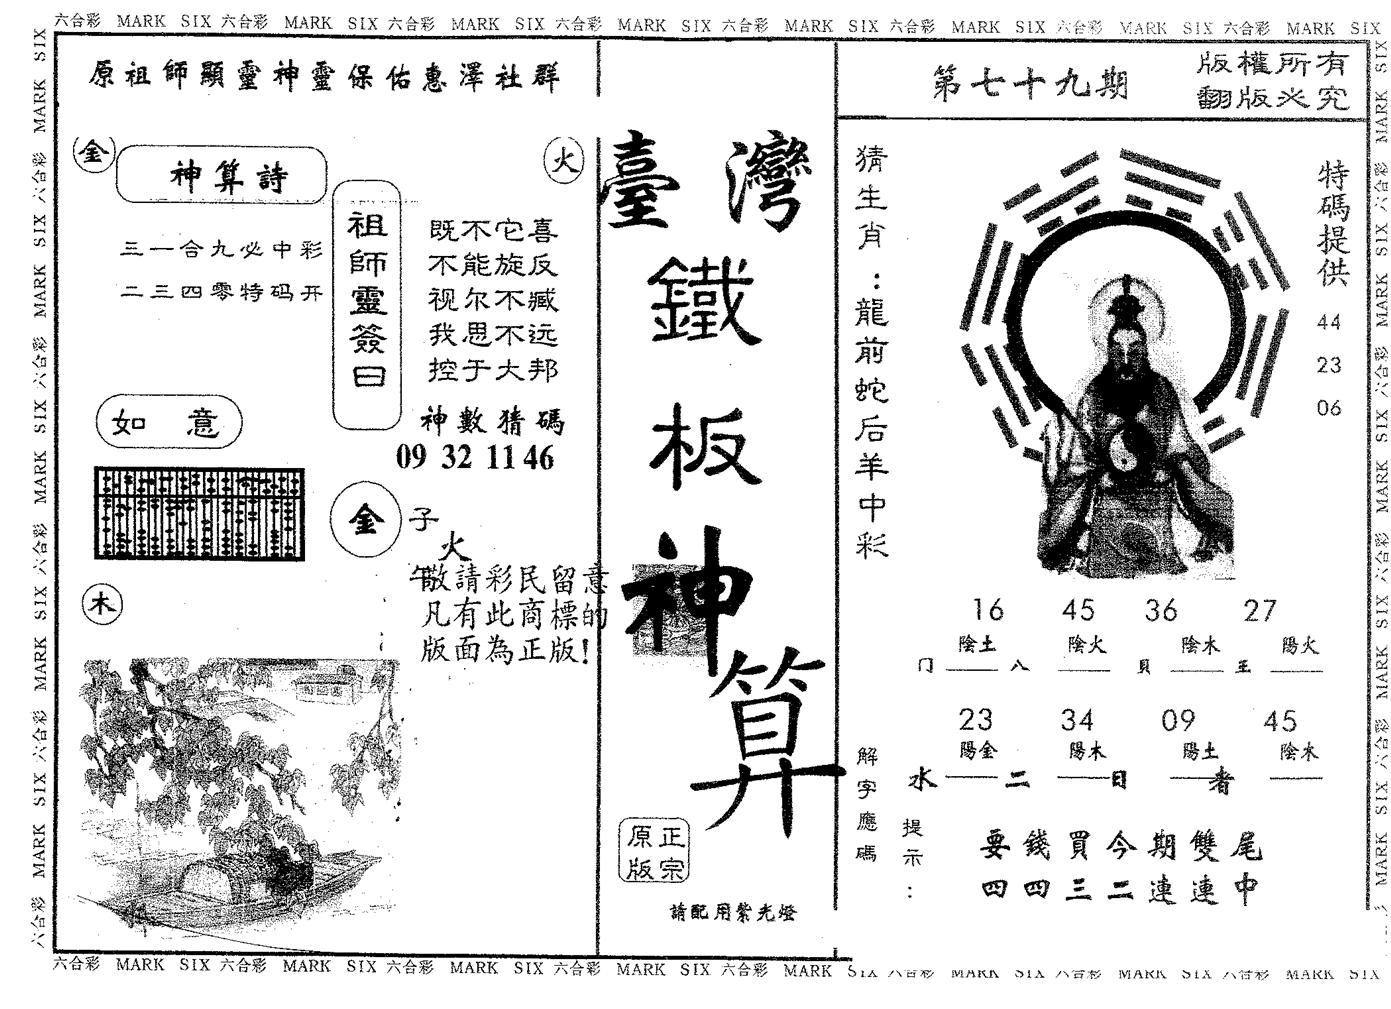 六合彩 MARK SIX 六合彩 MARK SIX 六合彩 MARK SIX 六合彩 MARK SIX 六合彩 MARK SIX 六合彩 MARK SIX 六合彩 MARK SIX 六合彩 MARK SIX
原祖師顯靈神靈保佑惠澤社群
金
神算詩
三一合九必中彩
二三四零特码开
火
祖師靈簽曰
既不它喜
不能旋反
视尔不臧
我思不远
控于大邦
神數猜碼
09 32 11 46
如意
金
子
火
午
敬請彩民留意
凡有此商標的
版面為正版!
木
臺灣
鐵
板
神
算
正宗
原版
請配用紫光燈
第七十九期
版權所有
翻版必究
猜生肖:龍前蛇后羊中彩
特碼提供
44
23
06
16 45 36 27
陰土 陰火 陰木 陽火
门 八 貝 王
23 34 09 45
陽金 陽木 陽土 陰木
水 二 日 者
解字應碼
提示:
要錢買今期雙尾
四四三二連連中
六合彩 MARK SIX 六合彩 MARK SIX 六合彩 MARK SIX 六合彩 MARK SIX 六合彩 MARK SIX 六合彩 MARK SIX 六合彩 MARK SIX 六合彩 MARK SIX